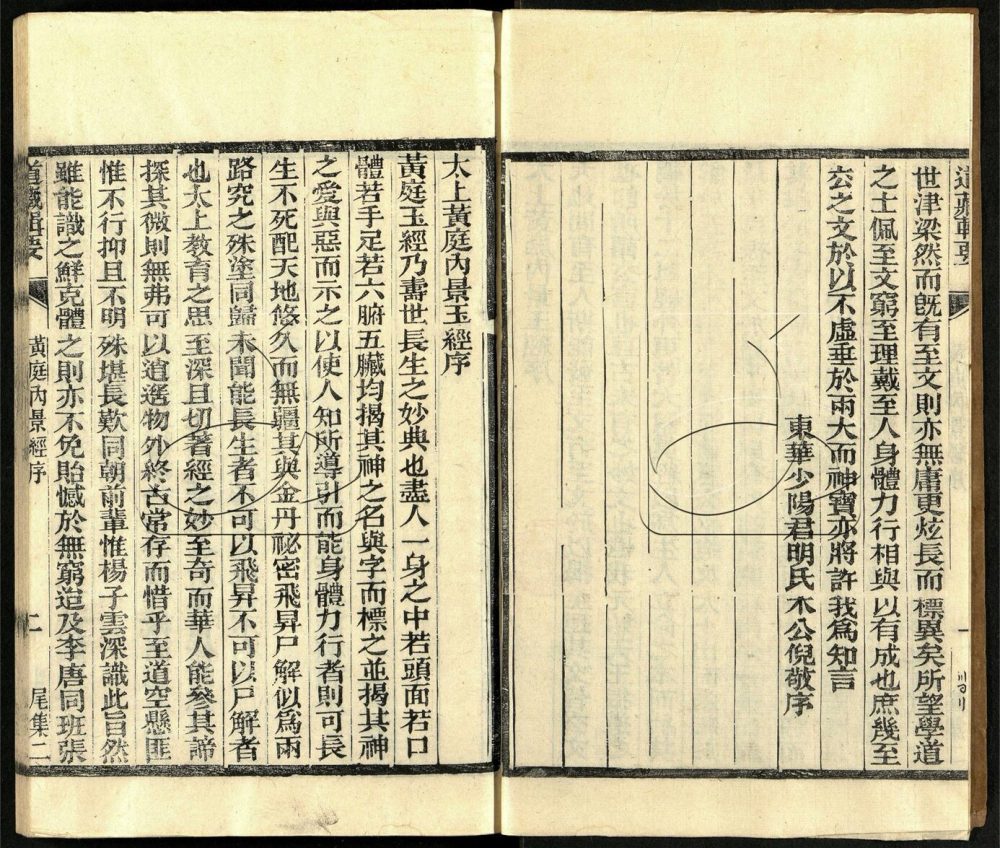 道藏輯要
一
世津梁然而旣有至文則亦無庸更炫長而標異矣所望學道
之士佩至文窮至理戴至人身體力行相與以有成也庶幾至
玄之文於以不虛垂於兩大而神寶亦將許我爲知言
東華少陽君明氏木公倪敬序
太上黃庭內景玉經序
黃庭玉經乃壽世長生之妙典也盡人一身之中若頭面若口
體若手足若六腑五臟均揭其神之名與字而標之並揭其神
之愛與惡而示之以使人知所導引而能身體力行者則可長
生不死配天地悠久而無疆其與金丹祕密飛昇尸解似爲兩
路究之殊塗同歸未聞能長生者不可以飛昇不可以尸解者
也太上教育之思至深且切著經之妙至奇而華人能參其諦
探其微則無弗可以道遙物外終古常存而惜乎至道空懸匪
惟不行抑且不明殊堪長歎同朝前輩惟楊子雲深識此旨然
雖能識之鮮克體之則亦不免貽憾於無窮迨及李唐同班張
道藏輯要 黃庭內景經序 二 尾集二